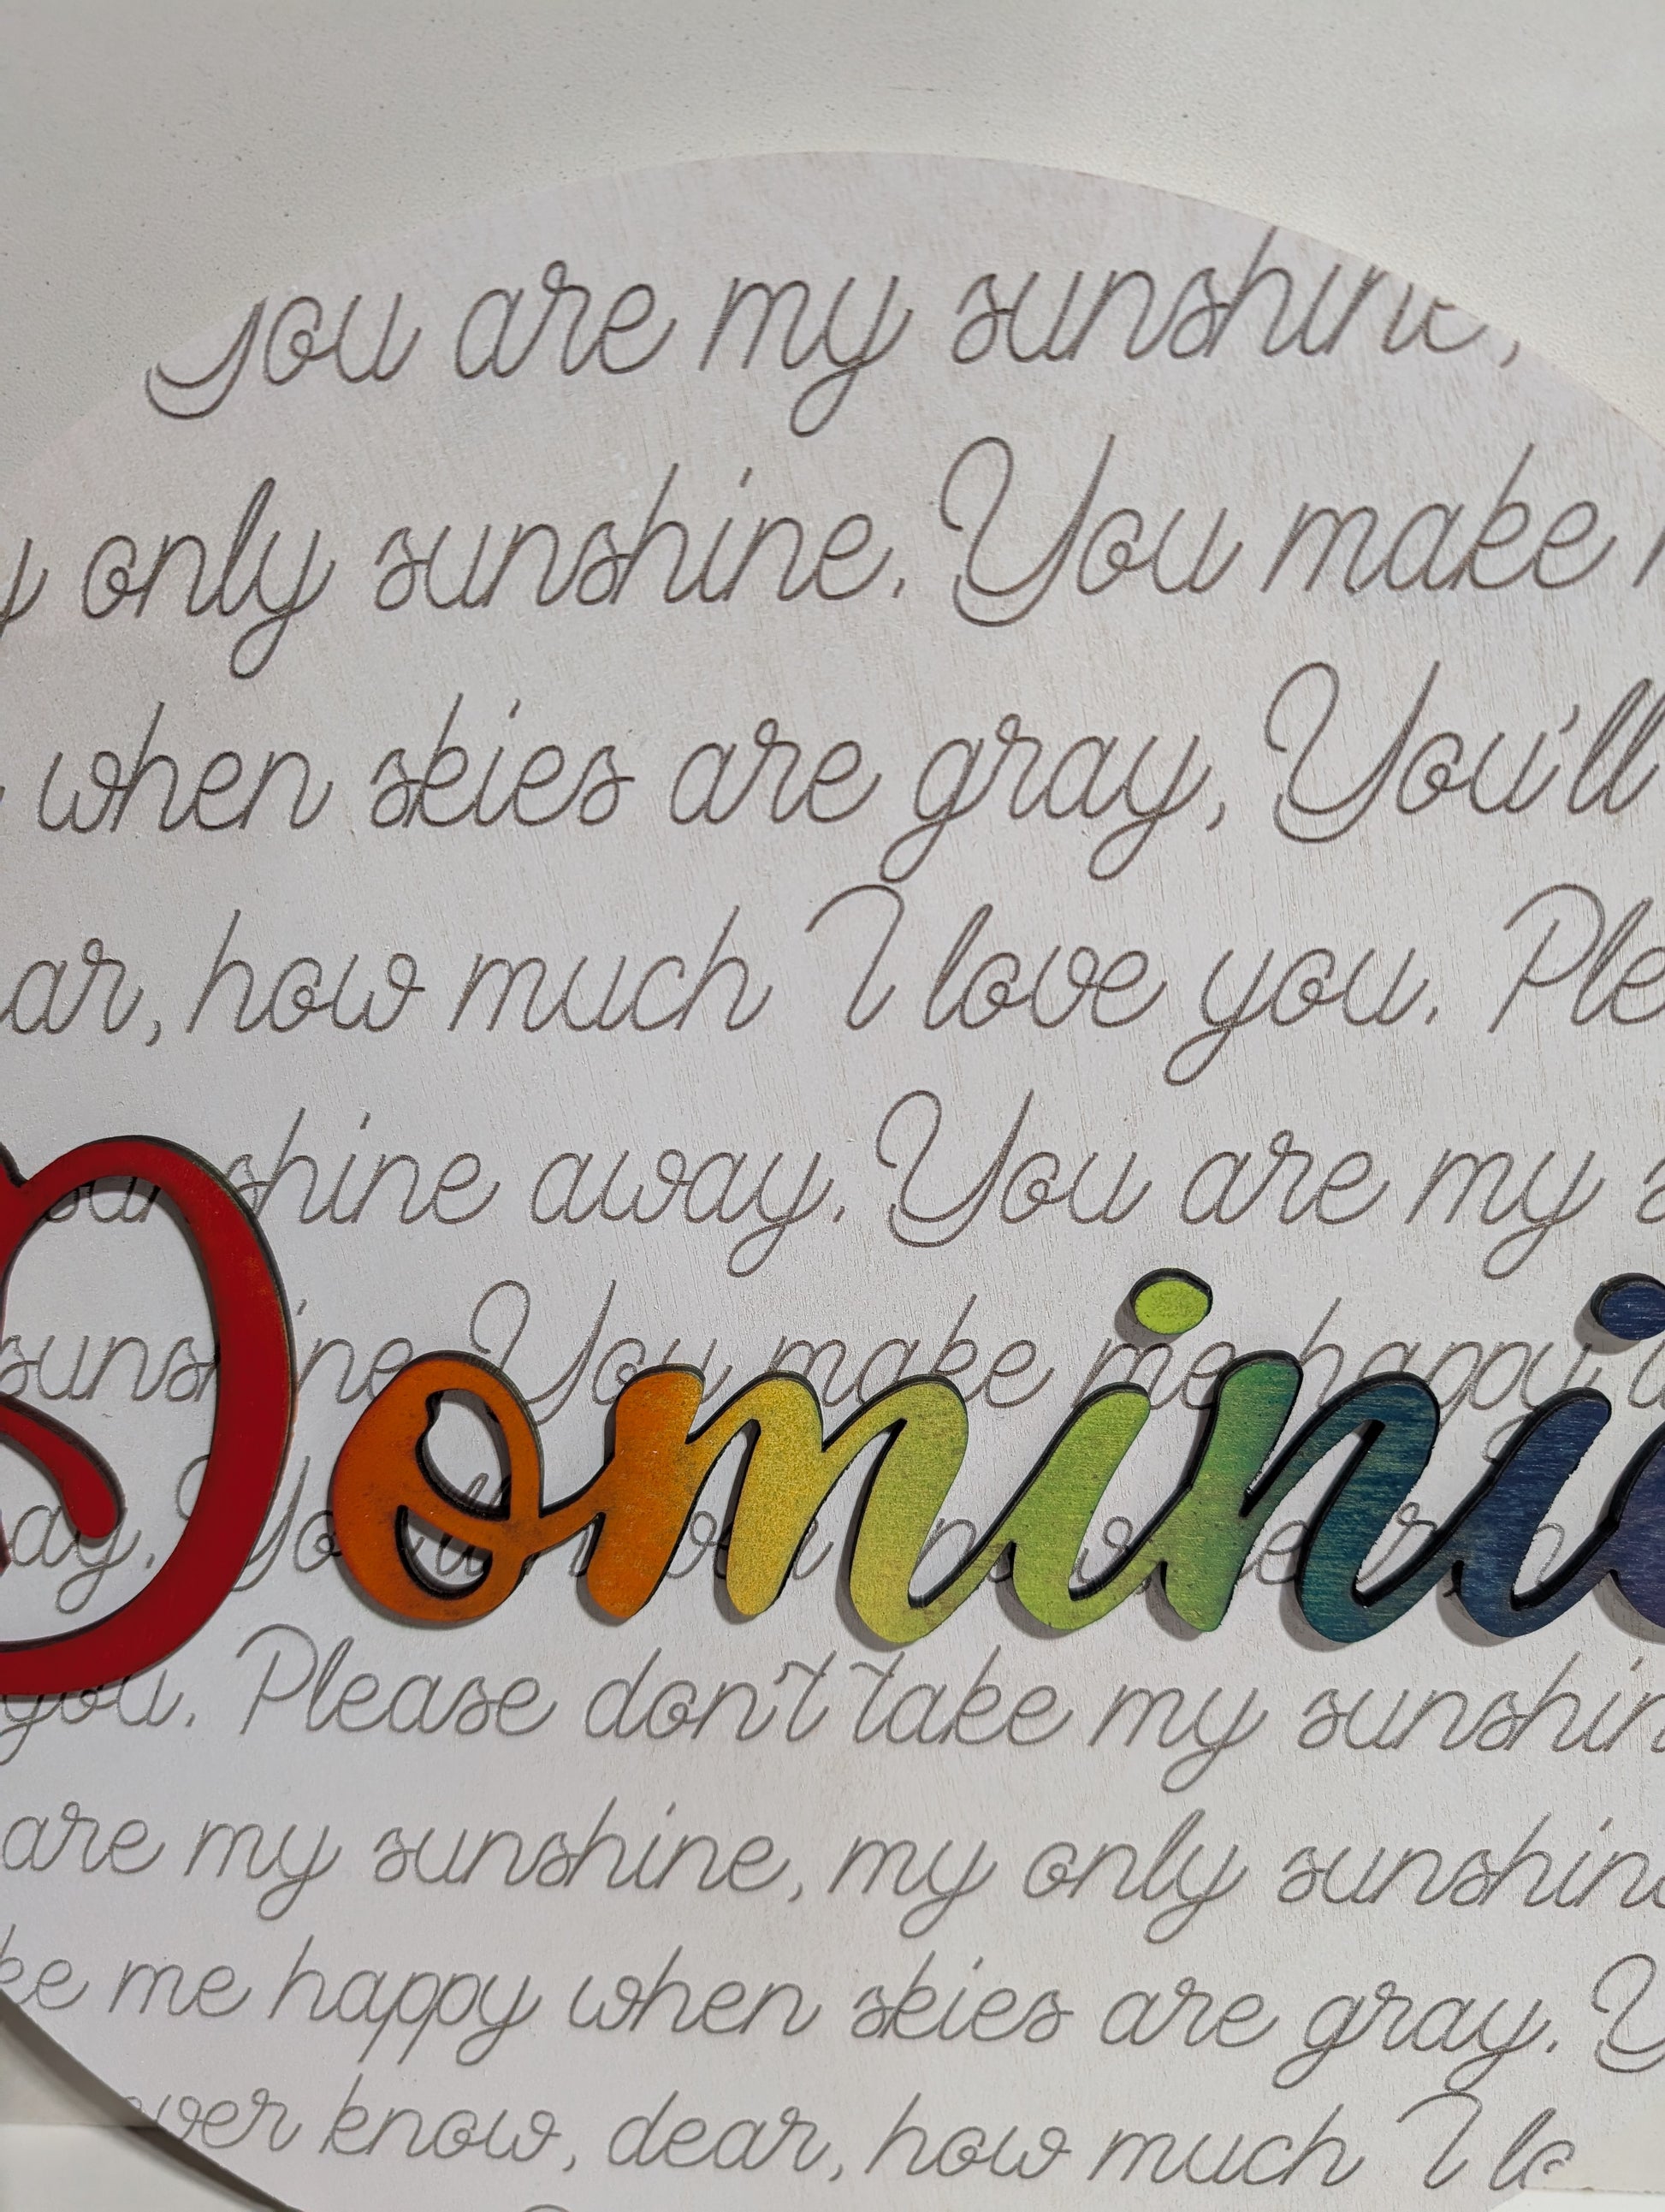 You are my sunshine,
y only sunshine. You make
when skies are gray, You'll
ar, how much I love you. Ple
sunshine away. You are my s
sunshine You make me happy
ay. You'll never know, dear, h
Domini
you. Please don't take my sunshin
are my sunshine, my only sunshine
ke me happy when skies are gray. Y
ever know, dear, how much I lo